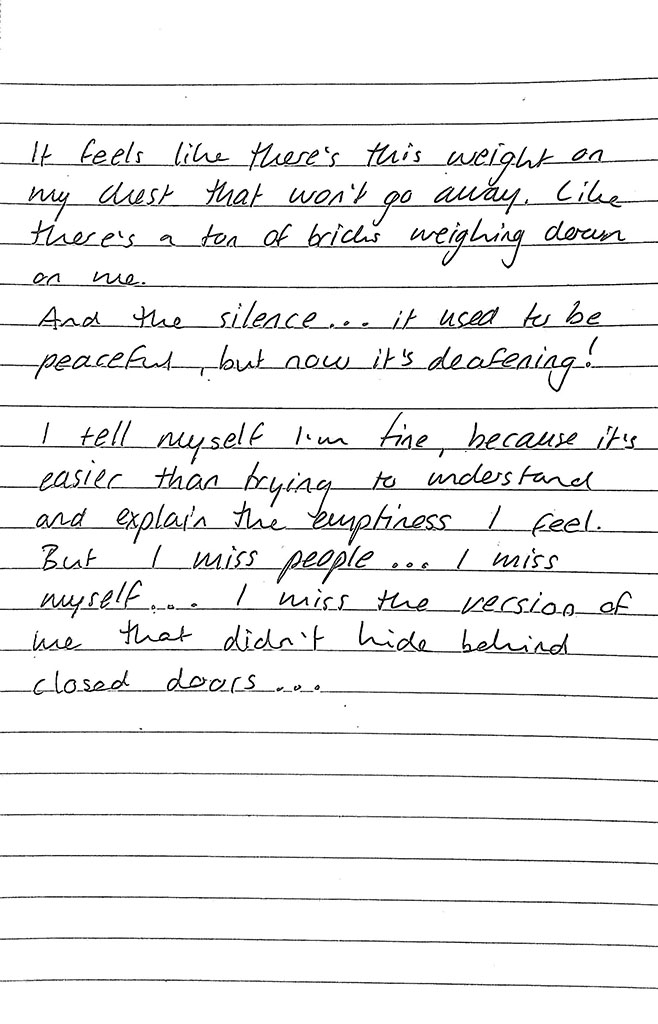 It feels like there's this weight on
my chest that won't go away. Like
there's a ton of bricks weighing down
on me.
And the silence... it used to be
peaceful, but now it's deafening!
I tell myself I'm fine, because it's
easier than trying to understand
and explain the emptiness I feel.
But I miss people... I miss
myself... I miss the version of
me that didn't hide behind
closed doors...